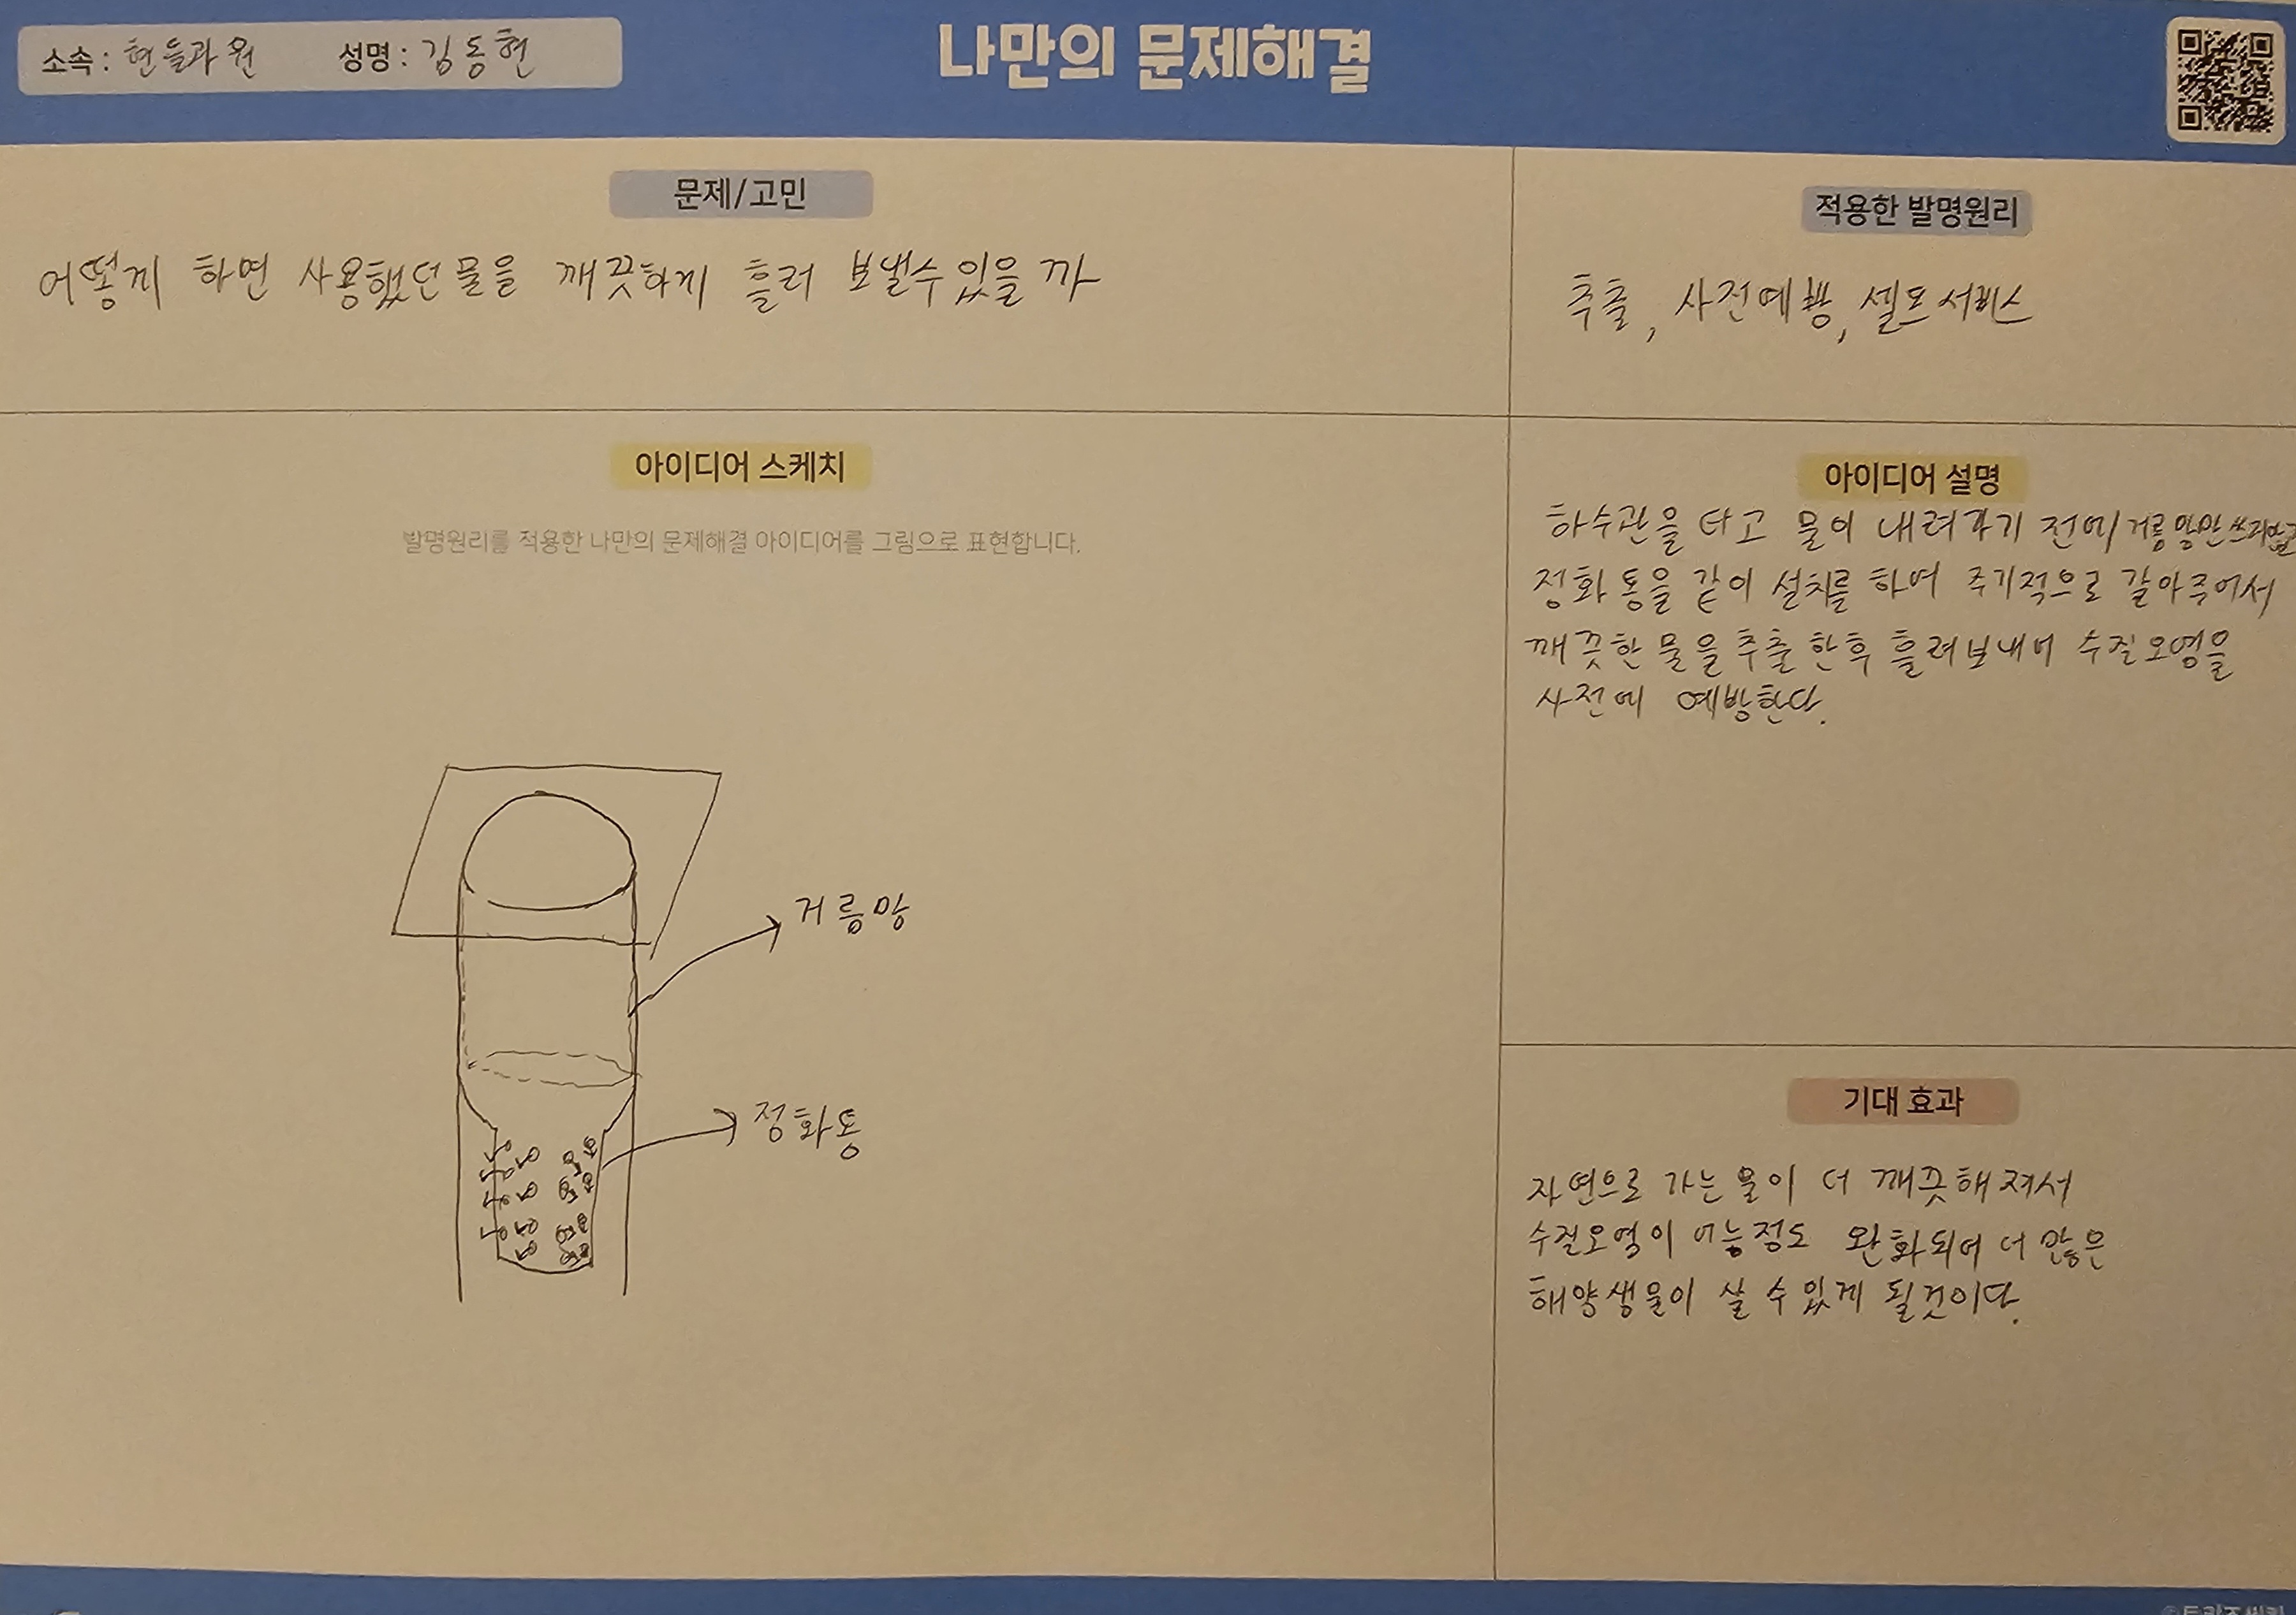 소속 : 현들과원 성명 : 김동현
나만의 문제해결
문제/고민
어떻게 하면 사용했던 물을 깨끗하게 흘러 보낼수있을까
적용한 발명원리
추출, 사전예방, 셀프서비스
아이디어 스케치
발명원리를 적용한 나만의 문제해결 아이디어를 그림으로 표현합니다.
거름망
정화통
아이디어 설명
하수관을 타고 물이 내려가기 전에 거름망만 쓰지말고
정화통을 같이 설치를 하여 주기적으로 갈아주어서
깨끗한 물을 추출한후 흘려보내어 수질오염을
사전에 예방한다.
기대 효과
자연으로 가는 물이 더 깨끗해져서
수질오염이 어능정도 완화되어 더 많은
해양생물이 살 수 있게 될것이다.